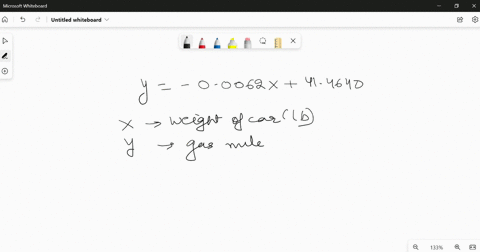 Microsoft Whiteboard
Untitled whiteboard
y = - 0.0062x + 41.4640
x → weight of car (lb)
y → gas mile
133%